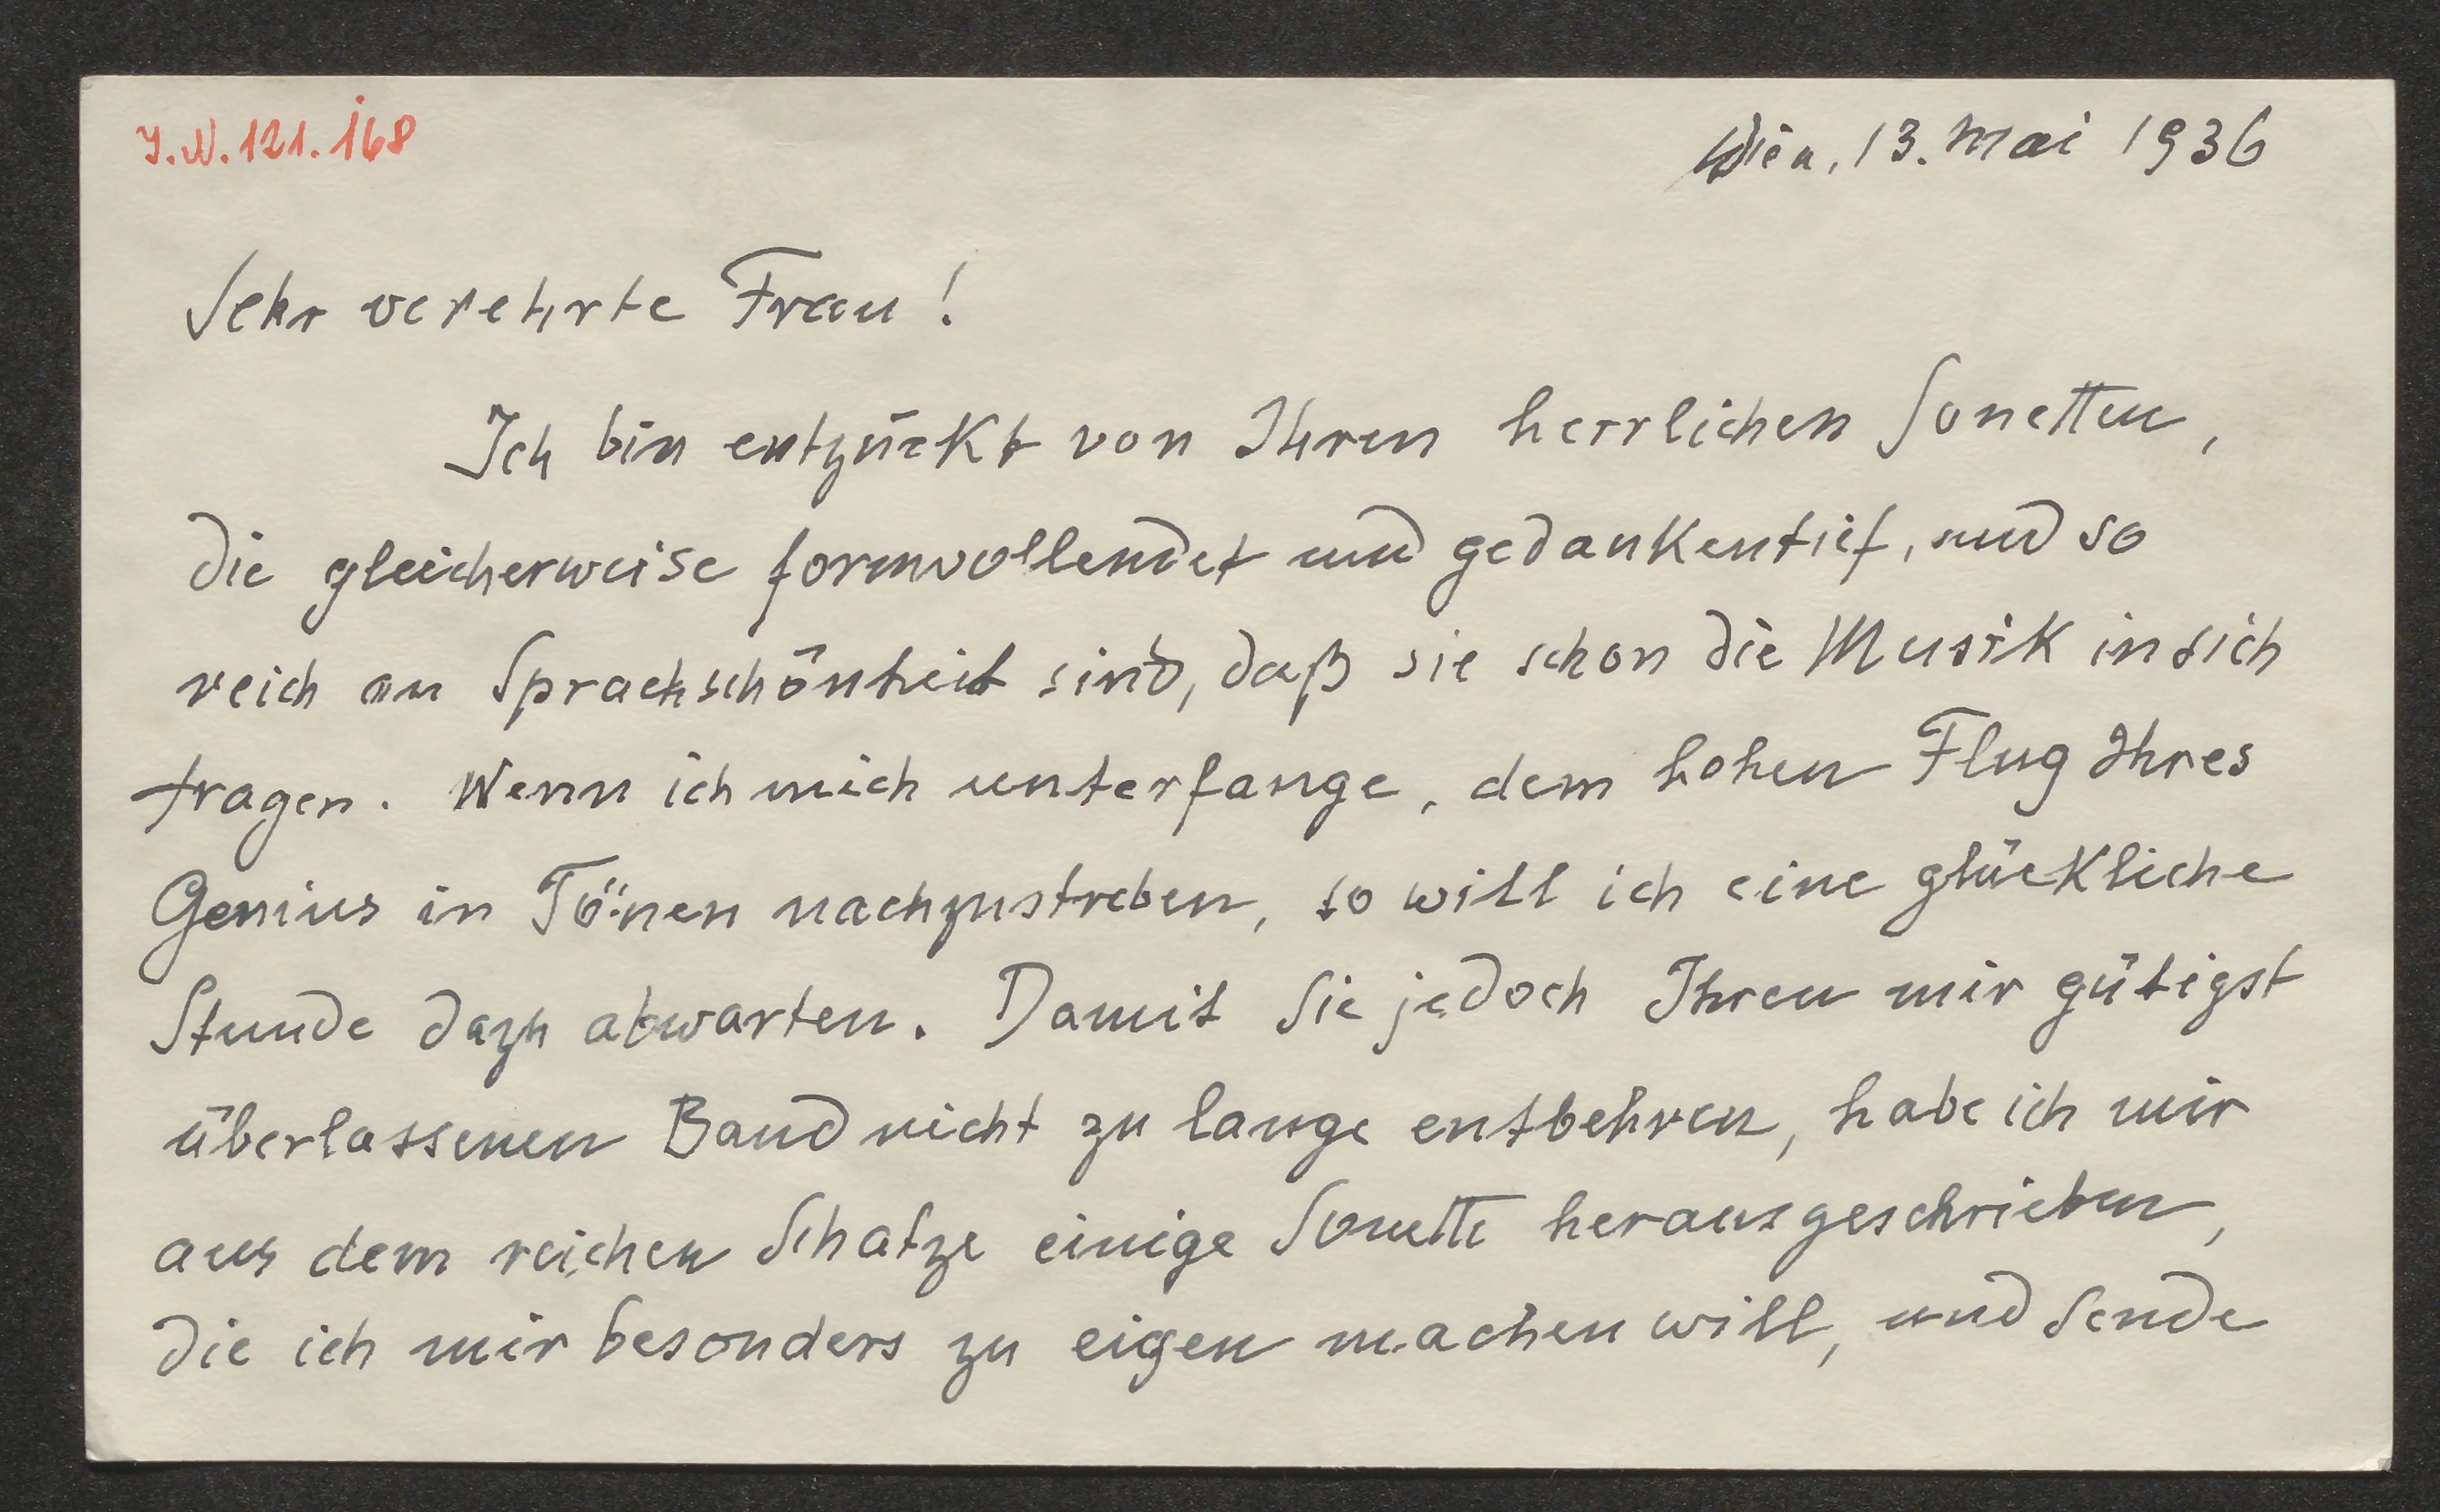 J.N. 121.168
Wien, 13. Mai 1936
Sehr verehrte Frau!
Ich bin entzückt von Ihren herrlichen Sonetten,
die gleicherweise formvollendet und gedankentief, und so
reich an Sprachschönheit sind, daß sie schon die Musik in sich
tragen. Wenn ich mich unterfange, dem hohen Flug Ihres
Genius in Tönen nachzustreben, so will ich eine glückliche
Stunde dazu abwarten. Damit Sie jedoch Ihren mir gütigst
überlassenen Band nicht zu lange entbehren, habe ich mir
aus dem reichen Schatze einige Sonette herausgeschrieben,
die ich mir besonders zu eigen machen will, und sende